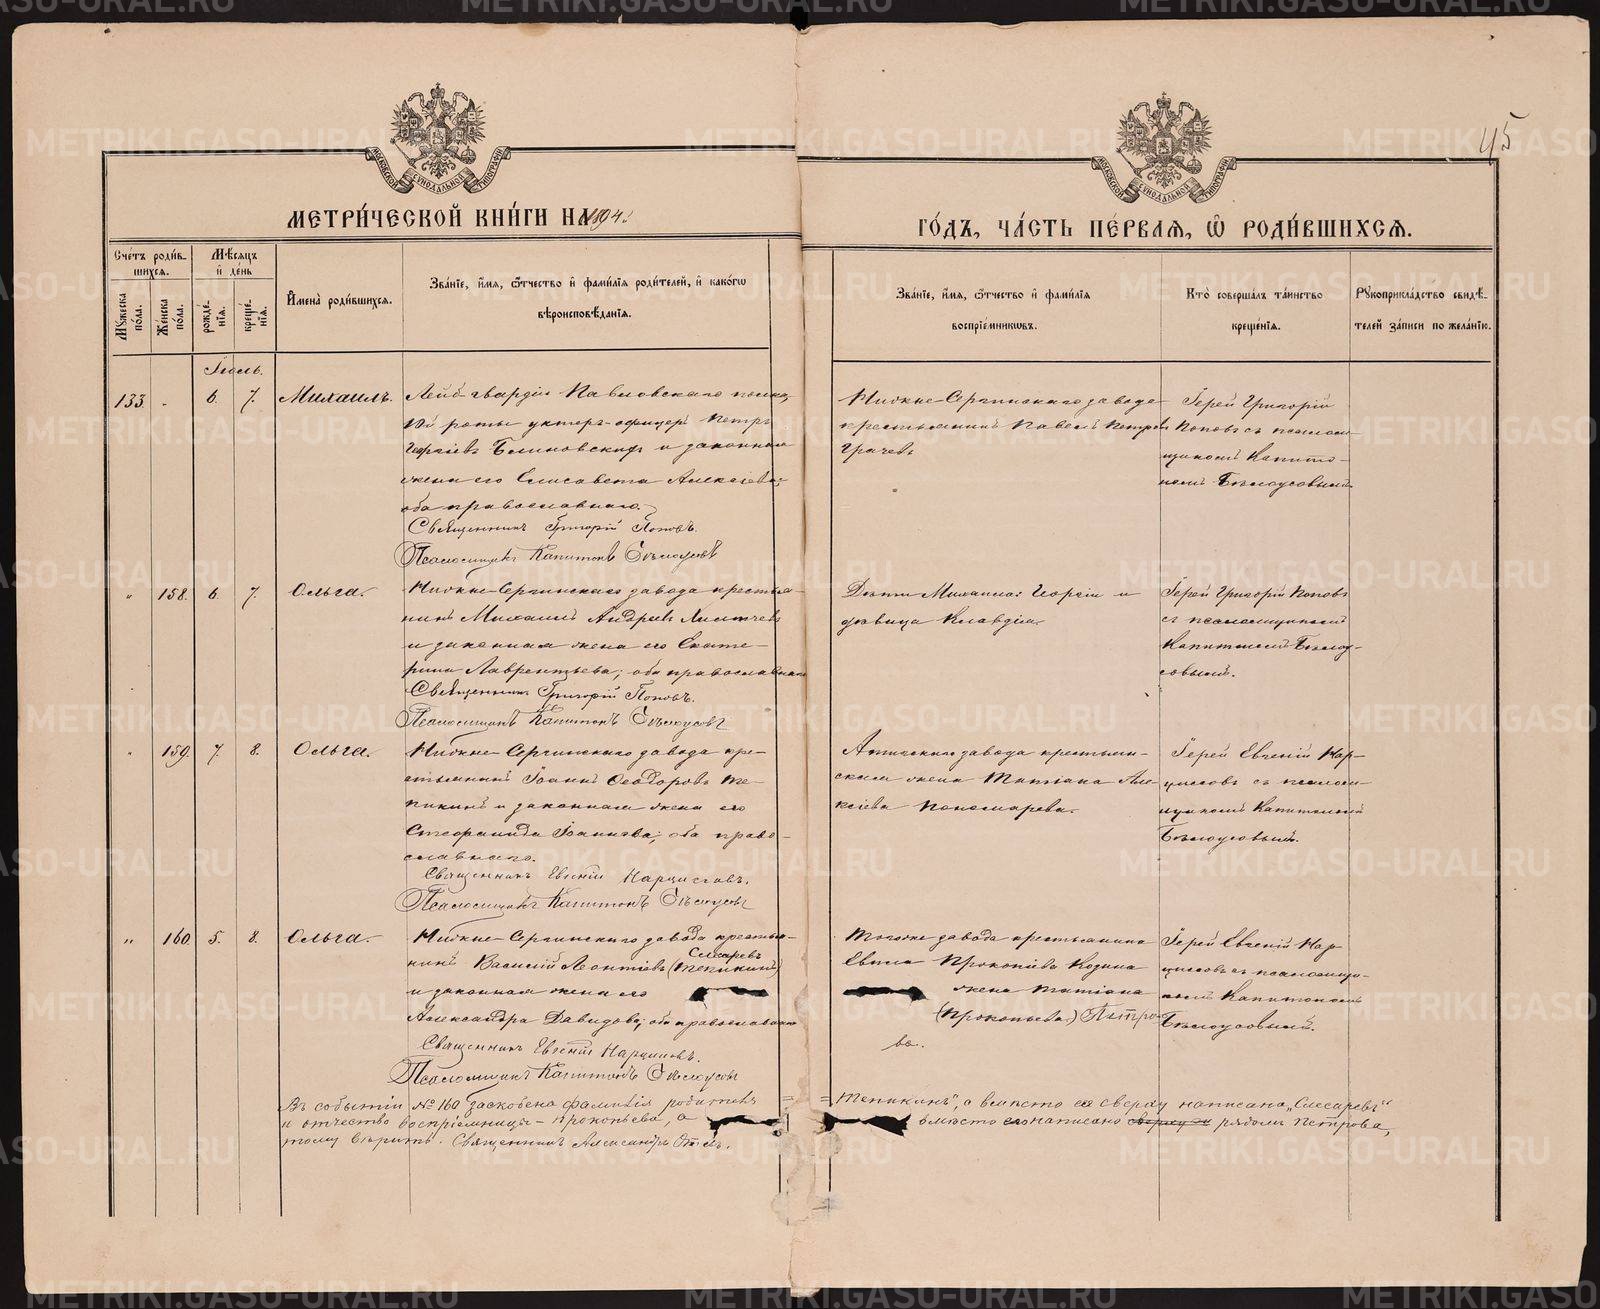 45
МОСКОВСКОЙ СѴНОДАЛЬНОЙ ТИПОГРАФІИ
МОСКОВСКОЙ СѴНОДАЛЬНОЙ ТИПОГРАФІИ
МЕТРИ́ЧЕСКОЙ КНИ́ГИ НА 1894.
ГО́ДЪ, ЧА́СТЬ ПЕ́РВАѦ, Ѽ РОДИ́ВШИХСѦ.
Сче́тъ роди́в-
шихсѧ.
Мꙋжеска по́ла.
Же́нска по́ла.
Мѣ́сѧцъ
и҆ де́нь
рожде́-нїѧ.
креще́-нїѧ.
И҆мена̀ роди́вшихсѧ.
Зва́нїе, и҆́мѧ, ѻ҆́тчество и҆ фами́лїѧ роди́телей, и҆ како́гѡ
вѣроисповѣ́данїѧ.
Зва́нїе, и҆́мѧ, ѻ҆́тчество и҆ фами́лїѧ
воспрїе́мникѡвъ.
Кто̀ соверша́лъ та́инство
креще́нїѧ.
Рꙋкоприкла́дство свидѣ́-
телей за́писи по жела́нїю.
Іюль.
133. - 6. 7. Михаилъ.
Лейбъ гвардіи Павловскаго полка,
10й роты унтеръ-офицеръ Петръ
Георгіевъ Блиновскихъ и законная
жена его Елисавета Алексіева;
оба православнаго.
Священникъ Григорій Поповъ.
Псаломщикъ Капитонъ Бѣлоусовъ
Нижне-Сергинскаго завода
крестьянинъ Павелъ Петровъ
Грачевъ
Іерей Григорій
Поповъ съ псалом-
щикомъ Капито-
номъ Бѣлоусовымъ.
" 158. 6. 7. Ольга.
Нижне-Сергинскаго завода крестья-
нинъ Михаилъ Андреевъ
и законная жена его Екате-
рина Лаврентьева; оба православнаго
Священникъ Григорій Поповъ.
Псаломщикъ Капитонъ Бѣлоусовъ
Михаила Георгій и
дѣвица Клавдія.
Іерей Григорій Поповъ
съ псаломщикомъ
Капитономъ Бѣлоу-
совымъ.
" 159. 7. 8. Ольга.
Нижне-Сергинскаго завода кре-
стьянинъ Іоаннъ Ѳеодоровъ Те-
пикинъ и законная жена его
Стефанида Іоаннова; оба право-
славнаго.
Священникъ Евгеній Нарциссовъ.
Псаломщикъ Капитонъ Бѣлоусовъ
завода крестьяни-
жена Татіана Але-
ксіева Пономарева.
Іерей Евгеній Нар-
циссовъ съ псалом-
щикомъ Капитономъ
Бѣлоусовымъ.
" 160. 5. 8. Ольга.
Нижне-Сергинскаго завода крестья-
Слесаревъ
нинъ Василій Леонтіевъ (Тепикинъ)
и законная жена его
Александра Давидова; оба православнаго
Священникъ Евгеній Нарциссовъ.
Псаломщикъ Капитонъ Бѣлоусовъ
Тогоже завода крестьянина
Прокопіева Козина
жена Татіана
(Прокопьева.) Петро-
ва.
Іерей Евгеній Нар-
циссовъ съ псаломщи-
комъ Капитономъ
Бѣлоусовымъ.
Въ событіи № 160 заскоблена фамилія родителя = = Тепикинъ", а вмѣсто ея сверху написана „Слесаревъ"
и отчество воспріемницы - Прокопьева, а вмѣсто его написано сверху рядомъ Петрова,
тому вѣрить. Священникъ Александръ